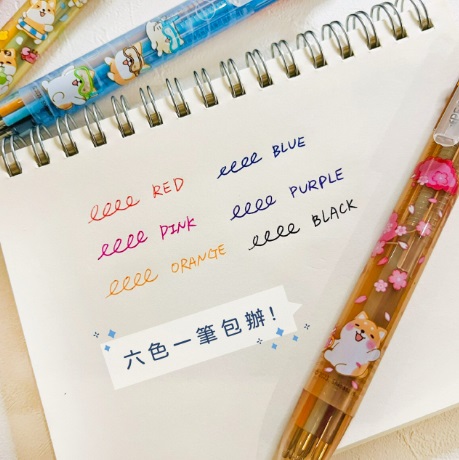 RED
BLUE
PINK
PURPLE
ORANGE
BLACK
六色一筆包辦!